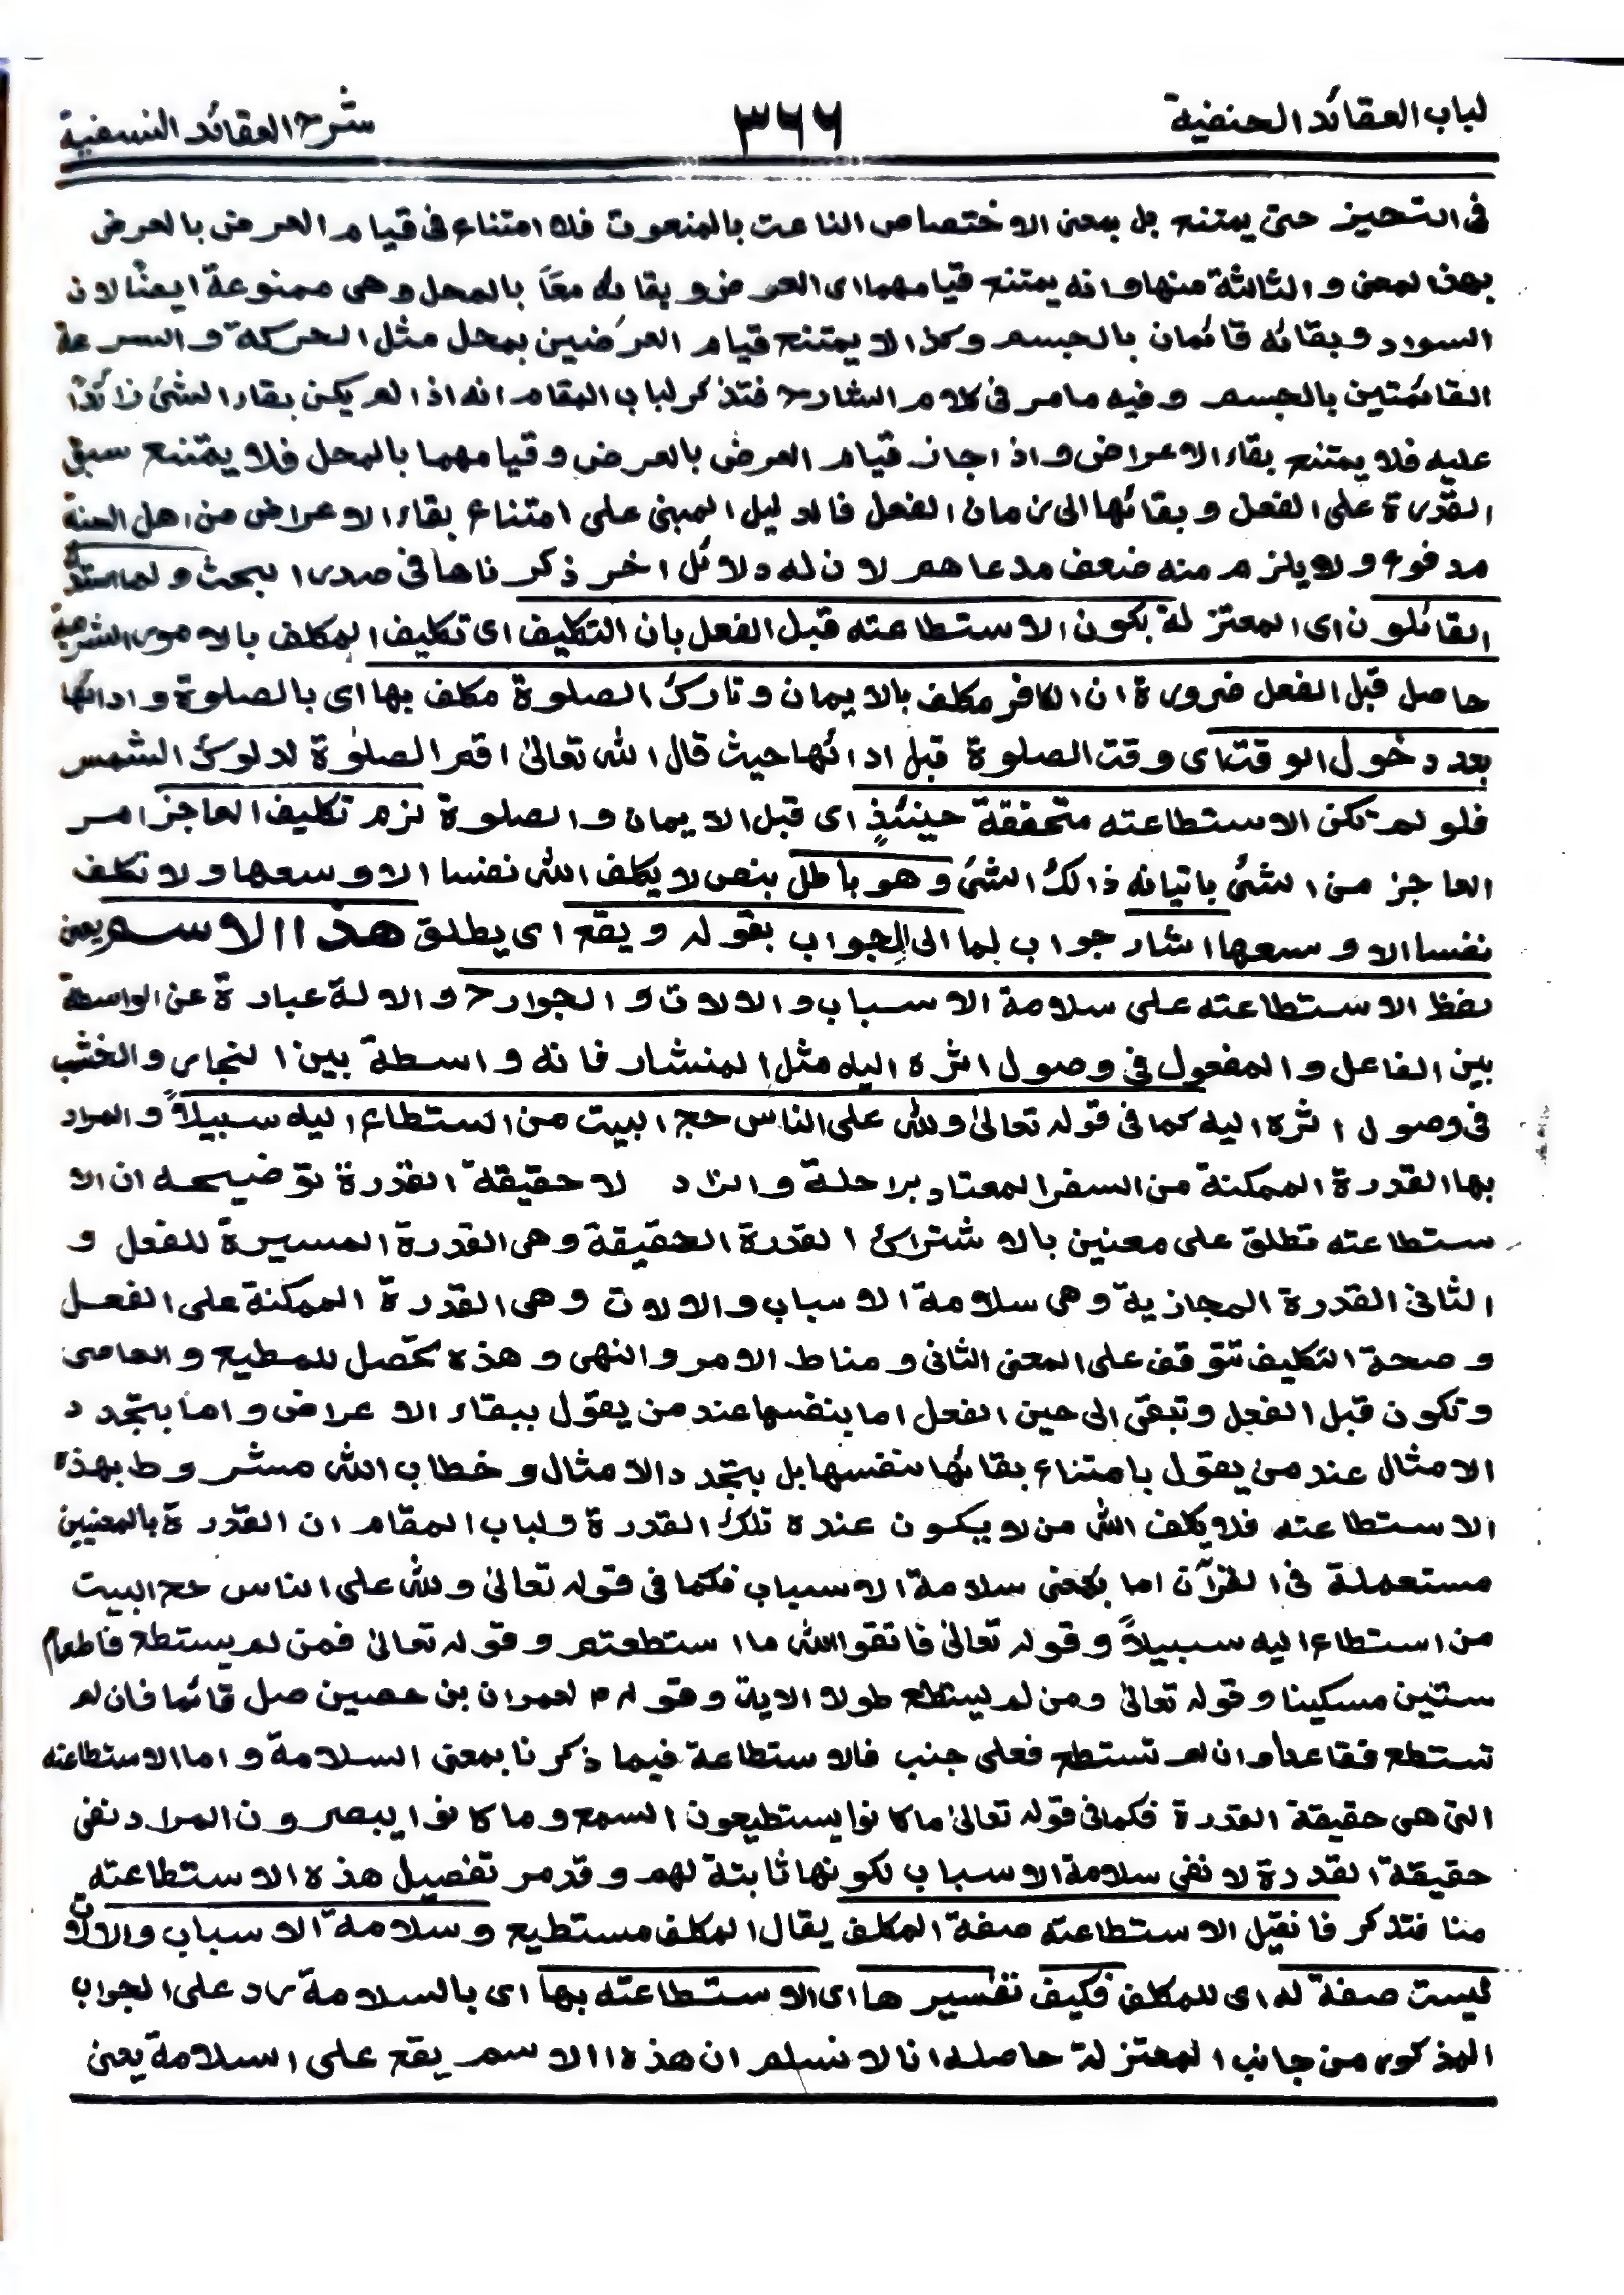 لباب العقائد الحنفية
٣٦٦
شرح العقائد النسفية
فى التحيز حتى يمتنع بل بمعنى الاختصاص الناعت بالمنعوت فلا امتناع فى قيام العرض بالعرض
بهذا لمعنى و الثالثة منها و انه يمتنع قيامهما اى العرض و بقائه معًا بالمحل وهى ممنوعة ايضًا لان
السواد و بقائه قائمان بالجسم وكذا لا يمتنع قيام العرضين بمحل مثل الحركة و السرعة
القائمتين بالجسم و فيه ما مر فى كلام الشارح فتذكر لباب المقام انه اذا لم يكن بقاء الشئ زائدًا
عليه فلا يمتنع بقاء الاعراض و اذا جاز قيام العرض بالعرض و قيامهما بالمحل فلا يمتنع سبق
القدرة على الفعل و بقائها الى زمان الفعل فالدليل المبنى على امتناع بقاء الاعراض من اهل السنة
مدفوع و لا يلزم منه ضعف مدعاهم لان له دلائل اخر ذكرناها فى صدر البحث و لما استدل
القائلون اى المعتزلة بكون الاستطاعته قبل الفعل بان التكليف اى تكليف المكلف بالامور الشرعية
حاصل قبل الفعل ضرورة ان الكافر مكلف بالايمان و تارك الصلوة مكلف بها اى بالصلوة و ادائها
بعد دخول الوقت اى وقت الصلوة قبل ادائها حيث قال الله تعالىٰ اقم الصلوٰة لدلوك الشمس
فلو لم تكن الاستطاعته متحققة حينئذٍ اى قبل الايمان و الصلوة لزم تكليف العاجز امر
العاجز من الشئ باتيانه ذالك الشئ و هو باطل بنص لا يكلف الله نفسا الا وسعها و لا تكلف
نفسا الا وسعها اشار جواب لما الى الجواب بقوله و يقع اى يطلق هذا الاسم يعنى
لفظ الاستطاعته على سلامة الاسباب و الالات و الجوارح و الالة عبارة عن الواسطة
بين الفاعل و المفعول فى وصول اثره اليه مثل المنشار فانه واسطة بين النجار و الخشب
فى وصول اثره اليه كما فى قوله تعالىٰ ولله على الناس حج البيت من استطاع اليه سبيلاً و المراد
بها القدرة الممكنة من السفر المعتاد براحلة و الزاد لا حقيقة القدرة توضيحه ان الا
ستطاعته تطلق على معنين بالاشتراك القدرة الحقيقة وهى القدرة الميسرة للفعل و
الثانى القدرة المجازية وهى سلامة الاسباب و الالات وهى القدرة الممكنة على الفعل
و صحة التكليف تتوقف على المعنى الثانى و مناط الامر و النهى و هذه تحصل للمطيع و العاصى
و تكون قبل الفعل و تبقى الى حين الفعل اما بنفسها عند من يقول ببقاء الاعراض و اما بتجدد
الامثال عند من يقول بامتناع بقائها بنفسها بل بتجدد الامثال و خطاب الله مشروط بهذه
الاستطاعته فلا يكلف الله من لا يكون عنده تلك القدرة و لباب المقام ان القدرة بالمعنيين
مستعملة فى القرآن اما بمعنى سلامة الاسباب فكما فى قوله تعالىٰ ولله على الناس حج البيت
من استطاع اليه سبيلاً و قوله تعالىٰ فاتقوا الله ما استطعتم و قوله تعالىٰ فمن لم يستطع فاطعام
ستين مسكينا و قوله تعالىٰ ومن لم يستطع طولا الاية و قوله م لعمران بن حصين صل قائما فان لم
تستطع فقاعدا و ان لم تستطع فعلى جنب فالاستطاعة فيما ذكرنا بمعنى السلامة و اما الاستطاعته
التى هى حقيقة القدرة فكما فى قوله تعالىٰ ما كانوا يستطيعون السمع و ما كانوا يبصرون المراد نفى
حقيقة القدرة لا نفى سلامة الاسباب لكونها ثابتة لهم و قد مر تفصيل هذه الاستطاعته
منا فتذكر فان قيل الاستطاعته صفة المكلف يقال المكلف مستطيع و سلامة الاسباب و الالات
ليست صفة له اى للمكلف فكيف تفسيرها اى الاستطاعته بها اى بالسلامة رد على الجواب
المذكور من جانب المعتزلة حاصله انا لا نسلم ان هذه الاسم يقع على السلامة يعنى